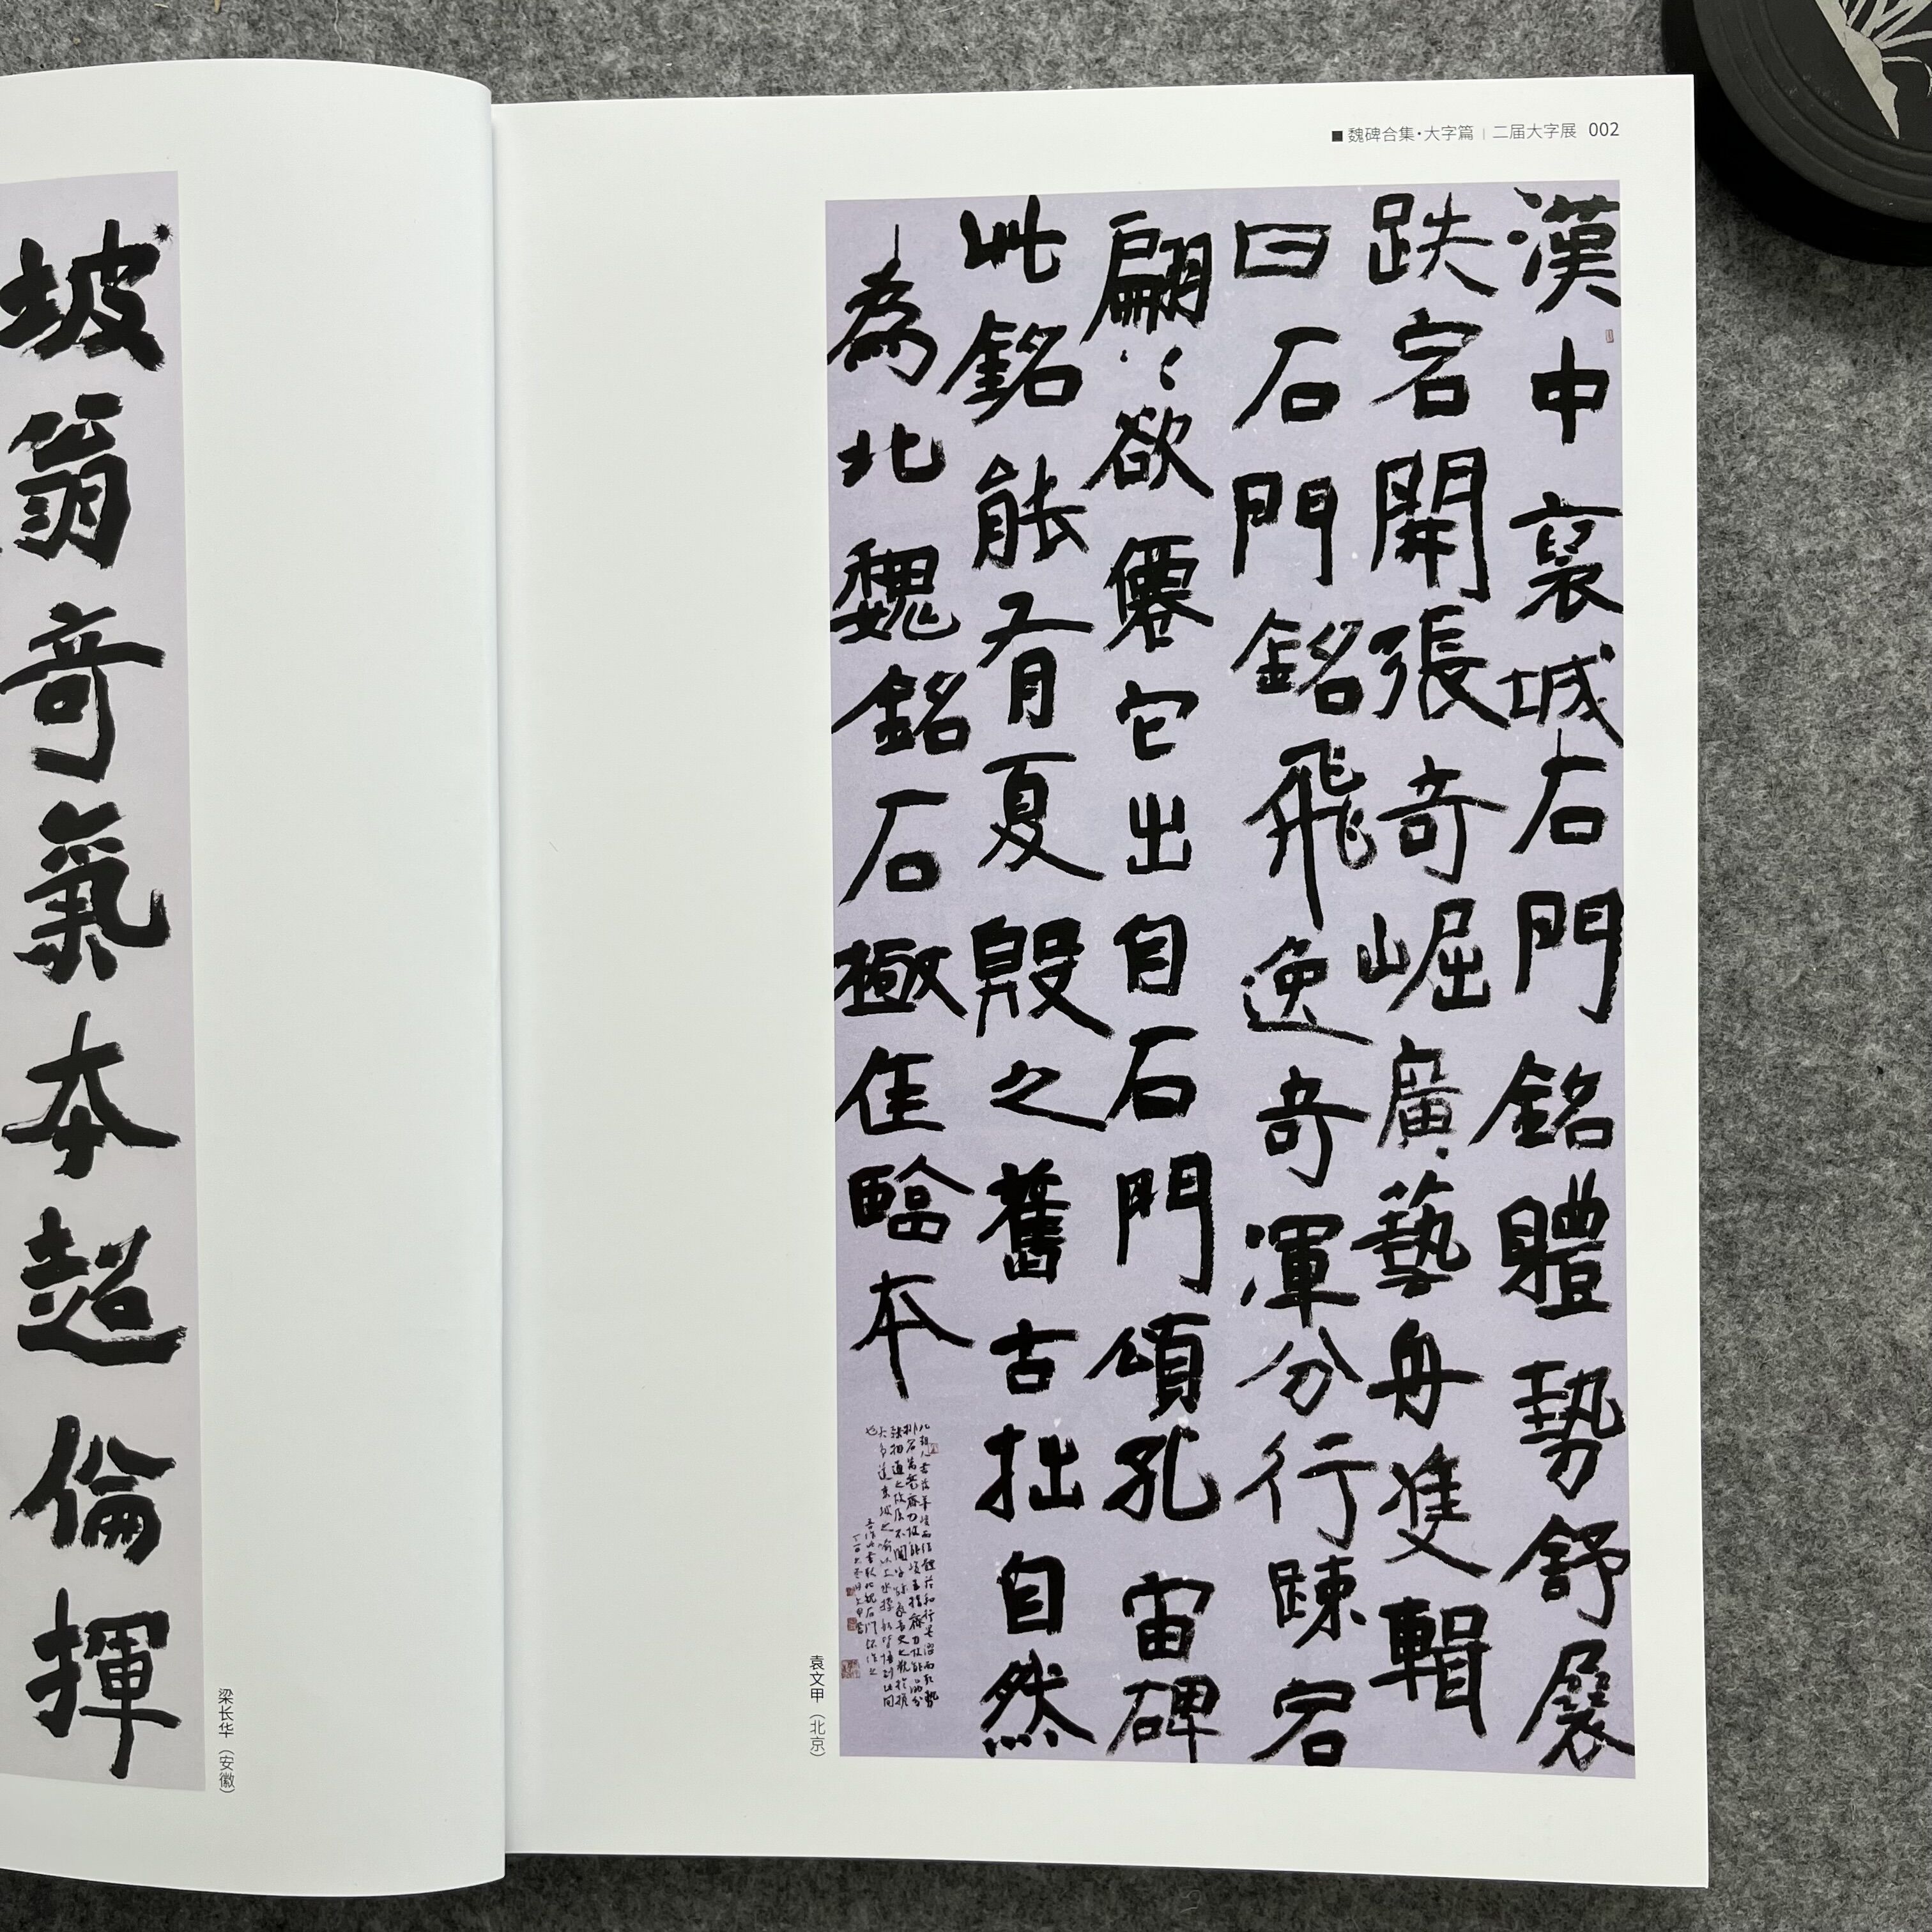 魏碑合集·大字篇 | 二届大字展 002
漢中裏城右門銘體勢舒展
跌宕開張奇崛廣藝舟隻輯
曰石門銘飛逸奇渾分行疎宕
翩〻欲僊它出自石門頌孔宙碑
此銘能有夏殷之舊古拙自然
為北魏銘石極佳臨本
袁文甲（北京）
坡翁奇氣本超倫揮
梁长华（安徽）